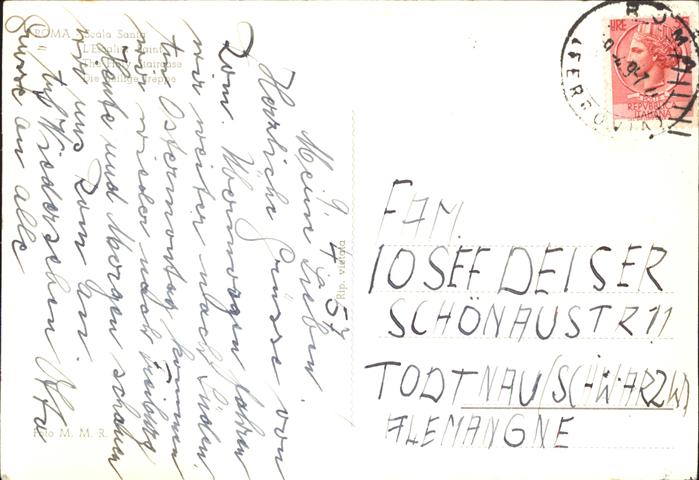 ROMA - Scala Santa
L'Escalier Saint
The Holy Staircase
Die Heilige Treppe
9. 4. 57
Meine Lieben.
Herzliche Grüsse von
Rom. Übermorgen fahren
wir weiter nach Süden.
Am Ostermontag kommen
wir wieder nach Freiburg
Heute und Morgen schauen
wir uns Rom an.
Auf Wiedersehen Otto
Grüsse an alle
Foto M. M. R.
Rip. vietata
ROMA
FERROVIA
LIRE
REPVBBLICA
ITALIANA
FAM.
IOSEF DEISER
SCHÖNAUSTR 11
TODTNAU/SCHWARZW
ALEMANGNE